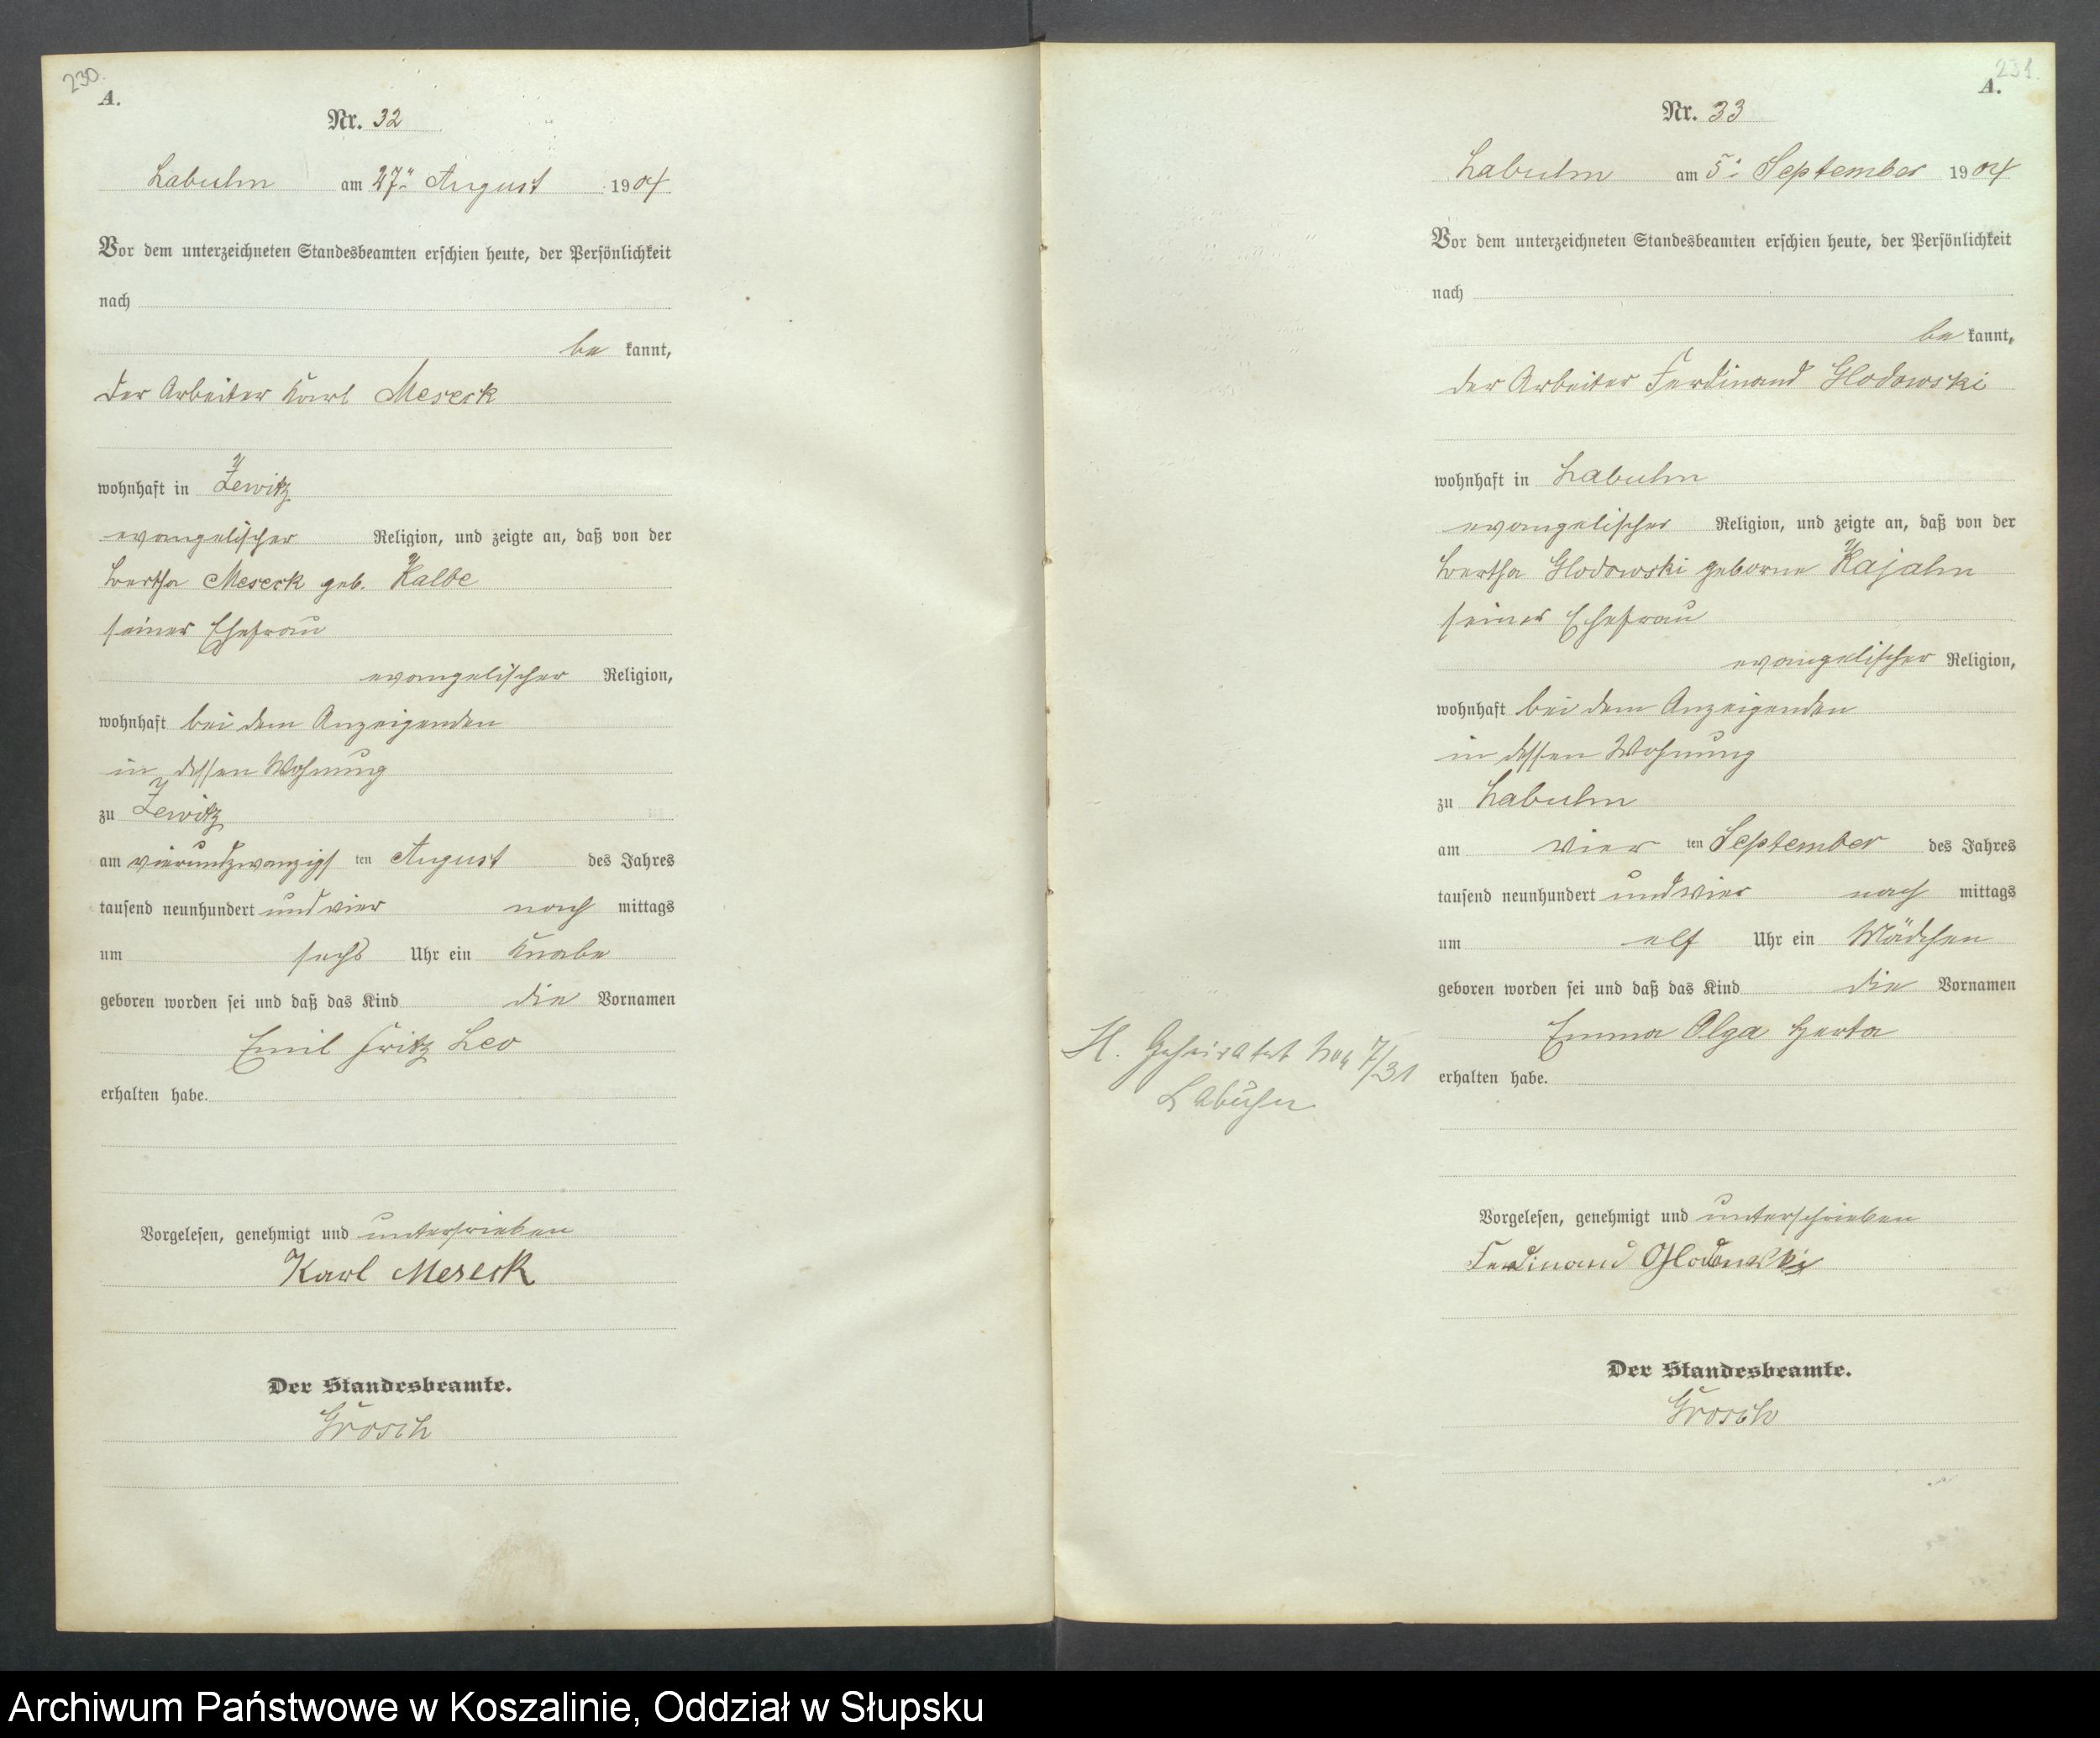 230.
A.
Nr. 32
Labuhn am 27ⁿ August 1904
Vor dem unterzeichneten Standesbeamten erschien heute, der Persönlichkeit
nach
be kannt,
der Arbeiter Karl Meseck
wohnhaft in Zewitz
evangelischer Religion, und zeigte an, daß von der
Bertha Meseck geb. Kalbe
seiner Ehefrau
evangelischer Religion,
wohnhaft bei dem Anzeigenden
in dessen Wohnung
zu Zewitz
am vierundzwanzigs ten August des Jahres
tausend neunhundert und vier nach mittags
um sechs Uhr ein Knabe
geboren worden sei und daß das Kind die Vornamen
Emil Fritz Leo
erhalten habe.
Vorgelesen, genehmigt und unterschrieben
Karl Meseck
Der Standesbeamte.
Grosch
231.
A.
Nr. 33
Labuhn am 5. September 1904
Vor dem unterzeichneten Standesbeamten erschien heute, der Persönlichkeit
nach
be kannt,
der Arbeiter Ferdinand Glodowski
wohnhaft in Labuhn
evangelischer Religion, und zeigte an, daß von der
Bertha Glodowski geborne Kajahn
seiner Ehefrau
evangelischer Religion,
wohnhaft bei dem Anzeigenden
in dessen Wohnung
zu Labuhn
am vier ten September des Jahres
tausend neunhundert und vier nach mittags
um elf Uhr ein Mädchen
geboren worden sei und daß das Kind die Vornamen
Emma Olga Herta
erhalten habe.
H. Geheiratet 7/31
Labuhn
Vorgelesen, genehmigt und unterschrieben
Ferdinand Glodowski
Der Standesbeamte.
Grosch
Archiwum Państwowe w Koszalinie, Oddział w Słupsku